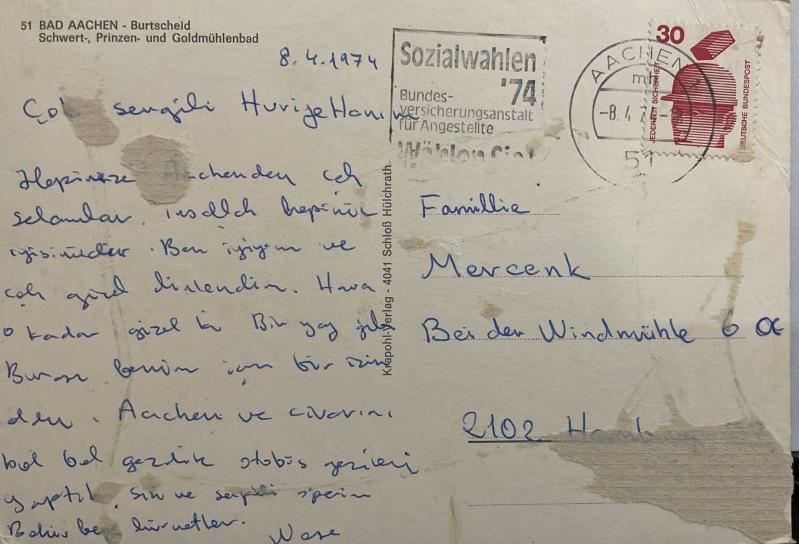 51 BAD AACHEN - Burtscheid
Schwert-, Prinzen- und Goldmühlenbad
8.4.1974
Sozialwahlen
'74
Bundes-
versicherungsanstalt
für Angestellte
Wählen Sie!
AACHEN
mh
-8.4.7
51
30
JEDERZEIT SICHERHEIT
DEUTSCHE BUNDESPOST
Çok sevgili Huriye Hanım
Hepinize Aachenden çok
selamlar. İnşallah hepiniz
iyisinizdir. Ben iyiyim ve
çok güzel dinlendim. Hava
o kadar güzel ki Bir yaz gibi
Burası benim için bir
Aachen ve civarını
bol bol gezdik otobüs gezileri
yaptık. size ve
hürmetler.
Krapohl-Verlag - 4041 Schloß Hülchrath
Famillie
Mercenk
Bei der Windmühle 6 a
2102 Hamburg